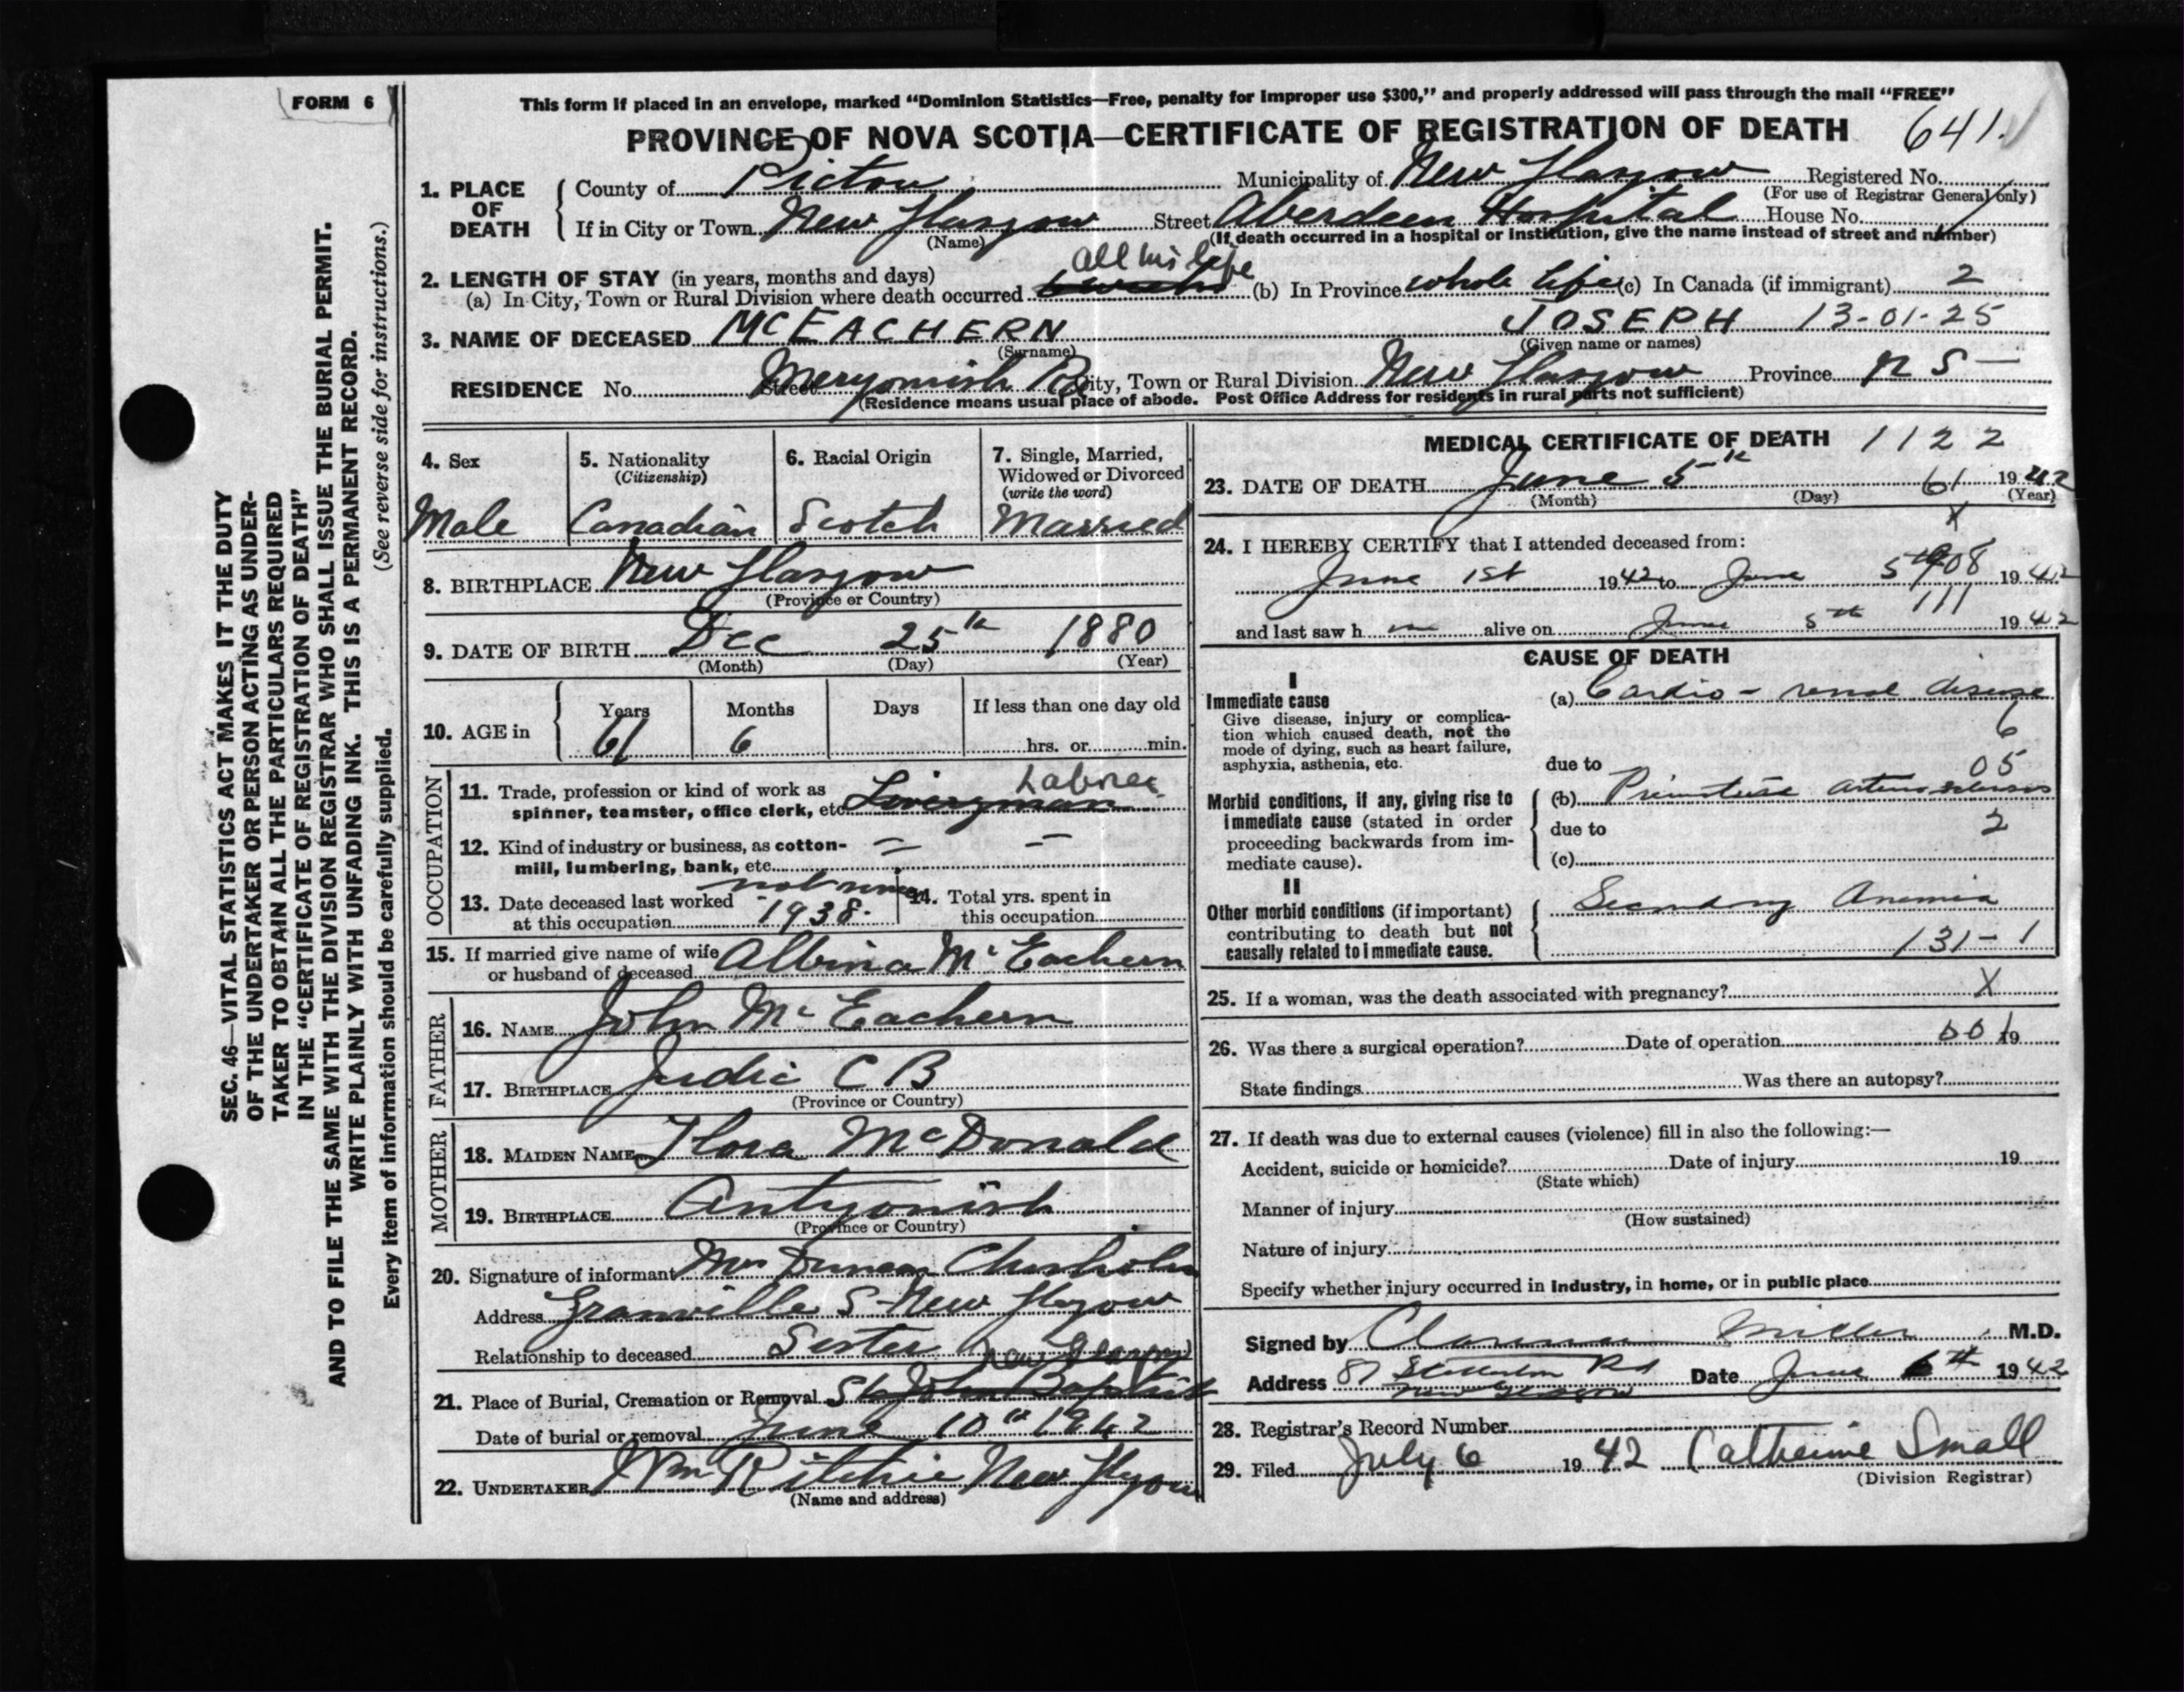 FORM 6
This form if placed in an envelope, marked “Dominion Statistics—Free, penalty for improper use $300,” and properly addressed will pass through the mail “FREE”
PROVINCE OF NOVA SCOTIA—CERTIFICATE OF REGISTRATION OF DEATH 641.
1. PLACE OF DEATH
County of Pictou Municipality of New Glasgow Registered No.
(For use of Registrar General only)
If in City or Town New Glasgow Street Aberdeen Hospital House No.
(Name) (If death occurred in a hospital or institution, give the name instead of street and number)
2. LENGTH OF STAY (in years, months and days) all his life
(a) In City, Town or Rural Division where death occurred (b) In Province whole life (c) In Canada (if immigrant) 2
3. NAME OF DECEASED MCEACHERN JOSEPH 13-01-25
(Surname) (Given name or names)
RESIDENCE No. Street City, Town or Rural Division New Glasgow Province N S —
(Residence means usual place of abode. Post Office Address for residents in rural parts not sufficient)
4. Sex
Male
5. Nationality
(Citizenship)
Canadian
6. Racial Origin
Scotch
7. Single, Married,
Widowed or Divorced
(write the word)
Married
8. BIRTHPLACE New Glasgow
(Province or Country)
9. DATE OF BIRTH Dec 25th 1880
(Month) (Day) (Year)
10. AGE in
Years Months Days If less than one day old
61 6 hrs. or min.
OCCUPATION
Laborer
11. Trade, profession or kind of work as
spinner, teamster, office clerk, etc.
12. Kind of industry or business, as cotton- = —
mill, lumbering, bank, etc.
13. Date deceased last worked
at this occupation 1938.
14. Total yrs. spent in
this occupation
15. If married give name of wife
or husband of deceased Albina McEachern
FATHER
16. NAME John McEachern
17. BIRTHPLACE Judic C B
(Province or Country)
MOTHER
18. MAIDEN NAME Flora McDonald
19. BIRTHPLACE Antigonish
(Province or Country)
20. Signature of informant Mrs Duncan Chisholm
Address Granville S New Glasgow
Relationship to deceased Sister
New Glasgow
21. Place of Burial, Cremation or Removal St John Baptist
Date of burial or removal June 10th 1942
22. UNDERTAKER Wm Ritchie New Glasgow
(Name and address)
MEDICAL CERTIFICATE OF DEATH 1122
23. DATE OF DEATH June 5th 61 1942
(Month) (Day) (Year)
X
24. I HEREBY CERTIFY that I attended deceased from:
June 1st 1942 to June 5th 908 1942
111
and last saw h im alive on June 5th 1942
CAUSE OF DEATH
I
Immediate cause
Give disease, injury or complica-
tion which caused death, not the
mode of dying, such as heart failure,
asphyxia, asthenia, etc.
(a) Cardio-renal disease
6
due to
05
Morbid conditions, if any, giving rise to
immediate cause (stated in order
proceeding backwards from im-
mediate cause).
(b) Primature arteriosclerosis
due to 2
(c)
II
Other morbid conditions (if important)
contributing to death but not
causally related to immediate cause.
Secondary Anemia
131-1
25. If a woman, was the death associated with pregnancy? X
26. Was there a surgical operation? Date of operation 001 19
State findings Was there an autopsy?
27. If death was due to external causes (violence) fill in also the following:—
Accident, suicide or homicide? Date of injury 19
(State which)
Manner of injury
(How sustained)
Nature of injury
Specify whether injury occurred in industry, in home, or in public place
Signed by Clarence Miller M.D.
Address 81 Stellarton Rd Date June 6th 1942
New Glasgow
28. Registrar's Record Number
29. Filed July 6 1942 Catherine Small
(Division Registrar)
SEC. 46—VITAL STATISTICS ACT MAKES IT THE DUTY
OF THE UNDERTAKER OR PERSON ACTING AS UNDER-
TAKER TO OBTAIN ALL THE PARTICULARS REQUIRED
IN THE “CERTIFICATE OF REGISTRATION OF DEATH”
AND TO FILE THE SAME WITH THE DIVISION REGISTRAR WHO SHALL ISSUE THE BURIAL PERMIT.
WRITE PLAINLY WITH UNFADING INK. THIS IS A PERMANENT RECORD.
(See reverse side for instructions.)
Every item of information should be carefully supplied.